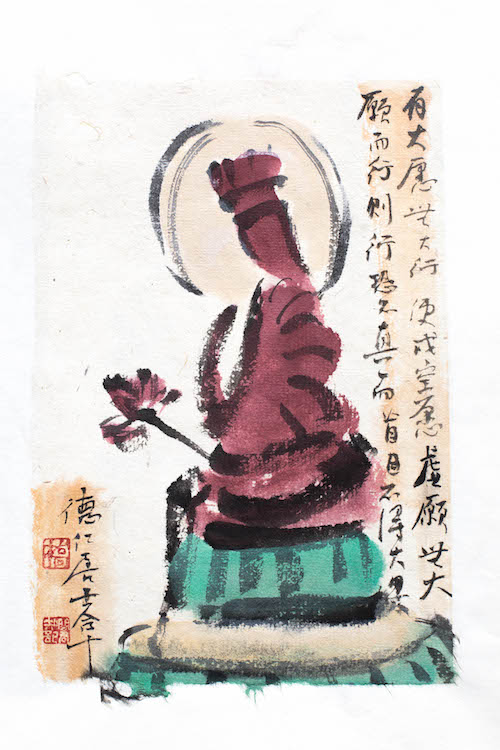 有大愿無大行便成空愿虚願無大
願而行则行恐不真而盲目不得大果
德仁居士合十